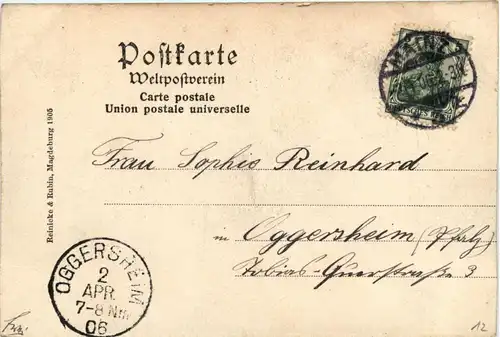 Postkarte
Weltpostverein
Carte postale
Union postale universelle
Reinicke & Rubin, Magdeburg 1905
MAINZ
DEUTSCHES REICH
Frau Sophie Reinhard
in Oggersheim (Pfalz)
Tobias-Querstraße 3
OGGERSHEIM
2
APR.
7-8 Nm
06
12